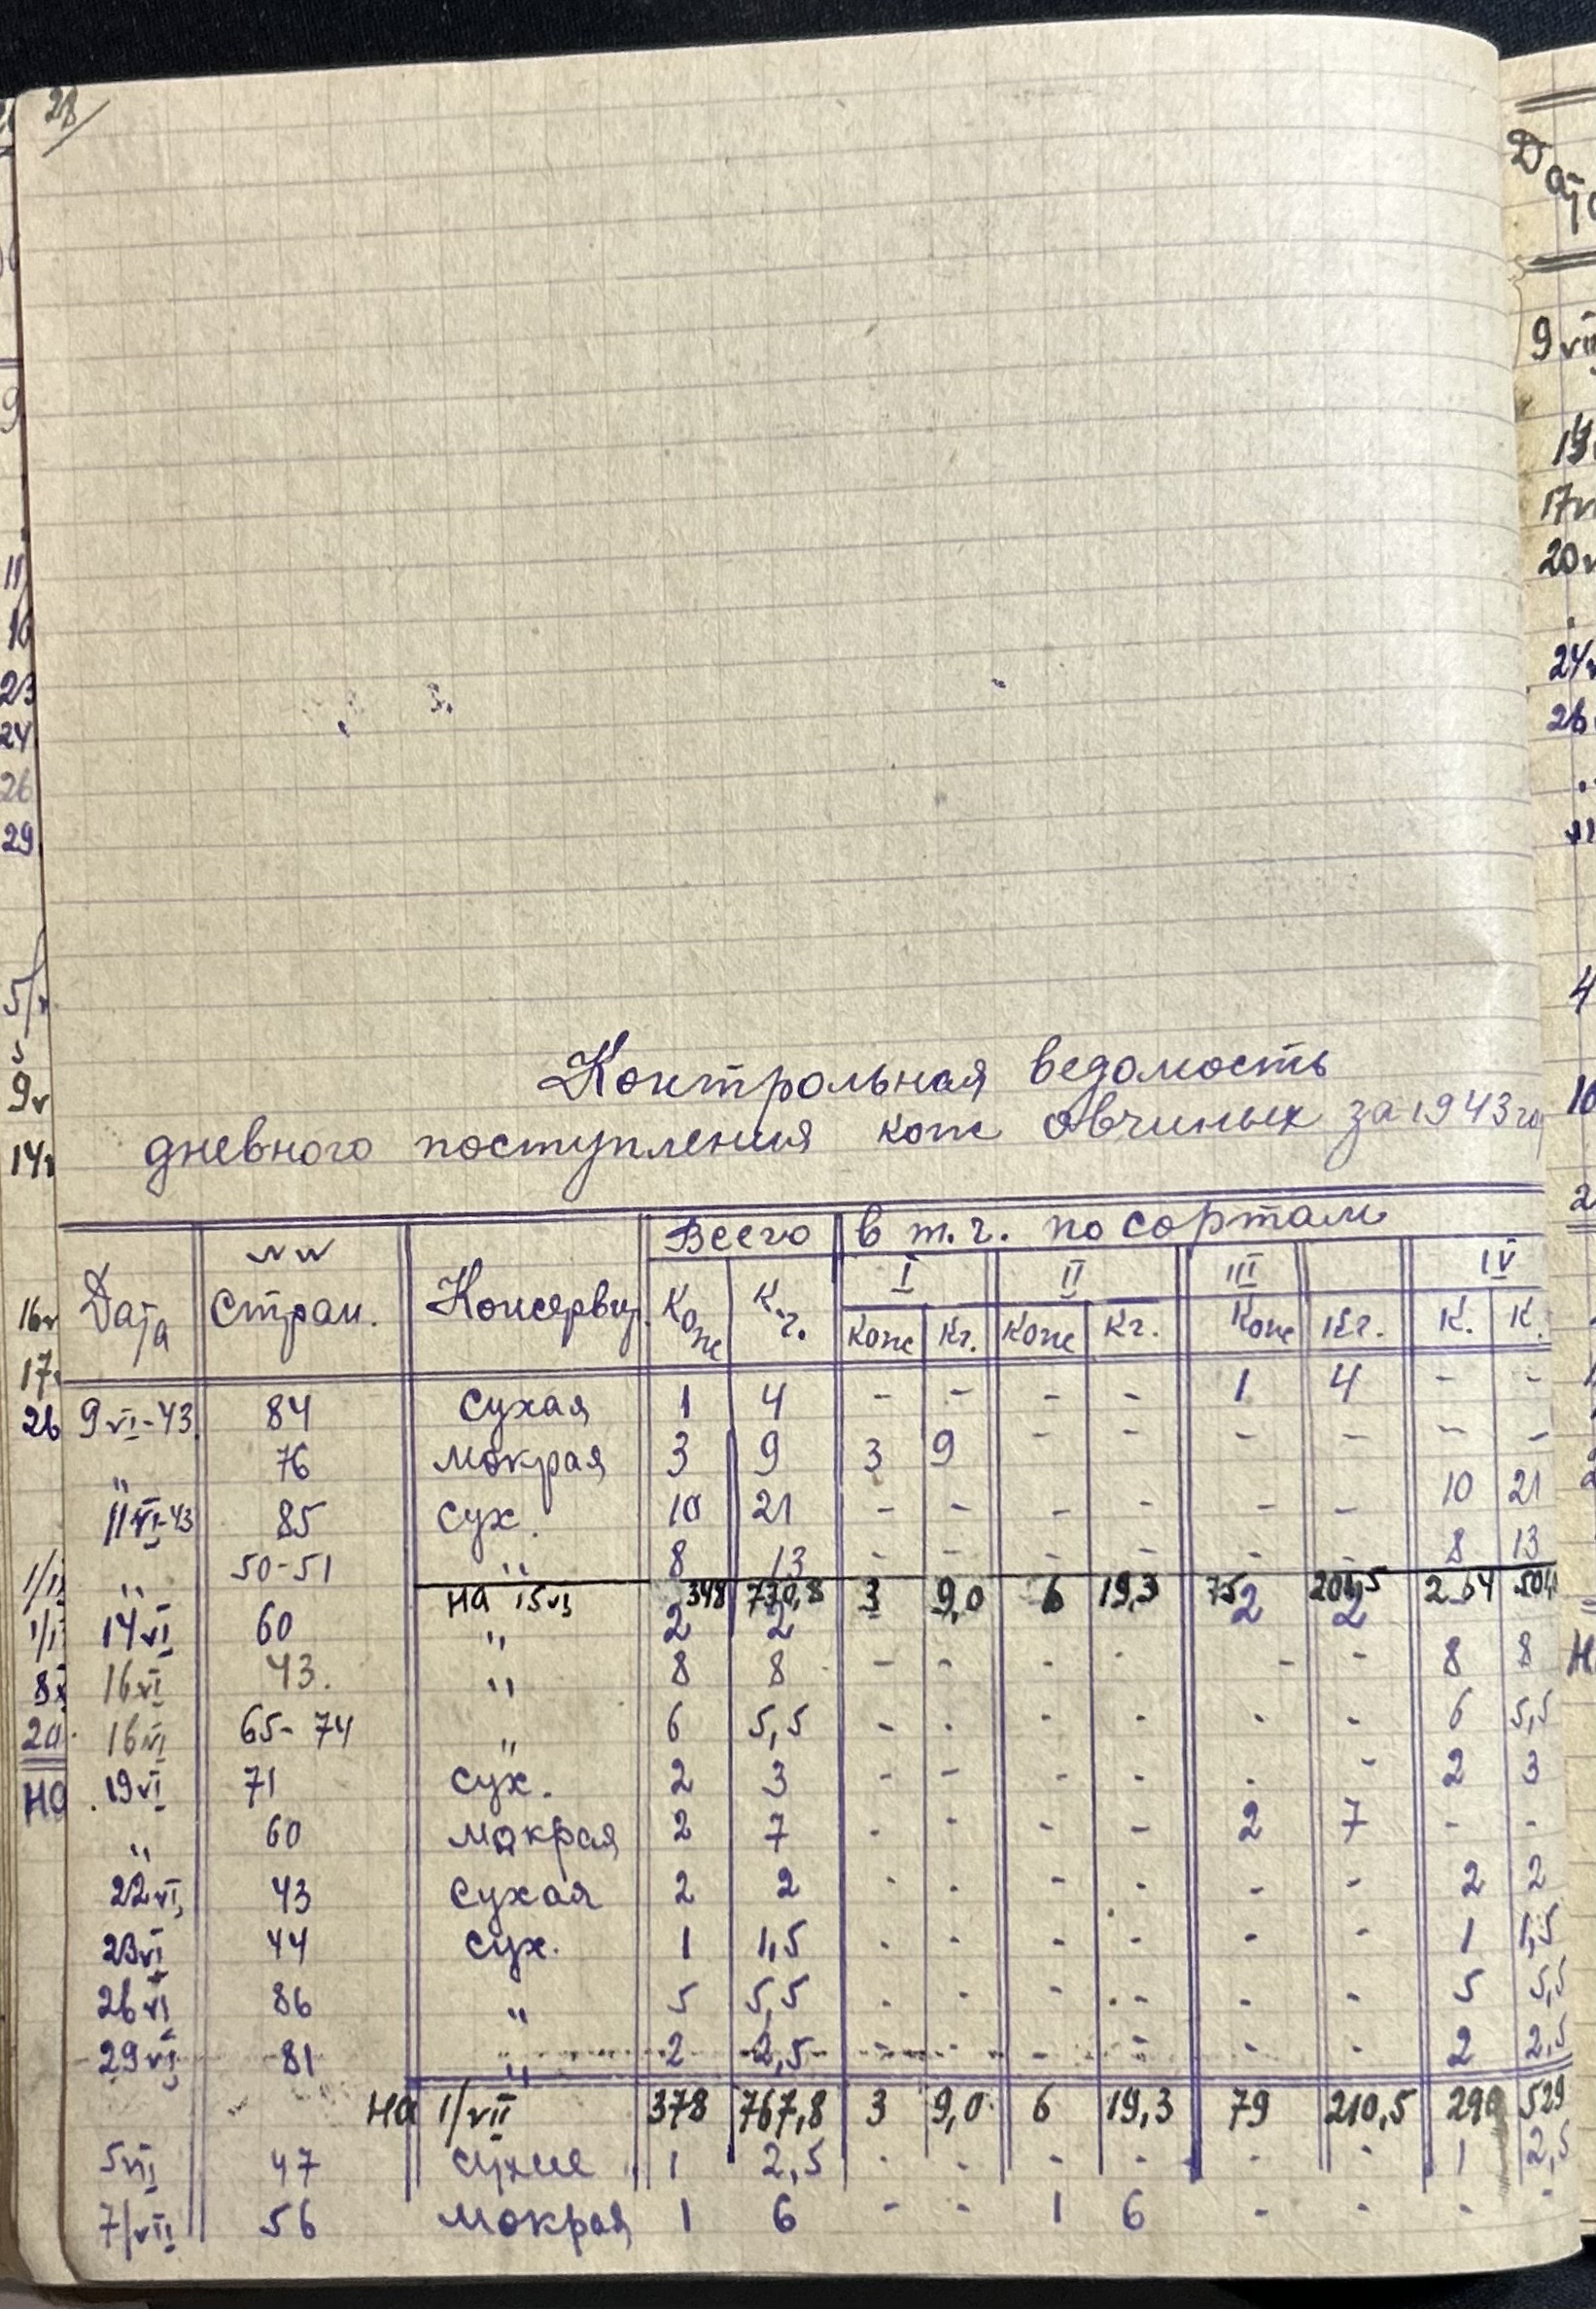 28/
Контрольная ведомость
дневного поступления кож овчиных за 1943 го
Дата №№ стран. Консервир. Всего в т.ч. по сортам
I II III IV
Кож Кг. Кож Кг. Кож Кг. Кож Кг. К. К.
9 VI-43 84 сухая 1 4 - - - - 1 4 - -
" 76 мокрая 3 9 3 9 - - - - - -
11 VI-43 85 сух. 10 21 - - - - - - 10 21
" 50-51 " 8 13 - - - - - - 8 13
на 15 VI 348 730,8 3 9,0 6 19,3 75 201,5 264 504
14 VI 60 " 2 2 2 2
16 VI 43. " 8 8 - - - - - - 8 8
16 VI 65-74 " 6 5,5 - - - - - - 6 5,5
19 VI 71 сух. 2 3 - - - - - - 2 3
" 60 мокрая 2 7 - - - - 2 7 - -
22 VI 43 сухая 2 2 - - - - - - 2 2
23 VI 44 сух. 1 1,5 - - - - - - 1 1,5
26 VI 86 " 5 5,5 - - - - - - 5 5,5
29 VI 81 " 2 2,5 - - - - - - 2 2,5
на 1/VII 378 767,8 3 9,0 6 19,3 79 210,5 290 529
5 VII 47 сухие 1 2,5 - - - - - - 1 2,5
7/VII 56 мокрая 1 6 - - 1 6 - - - -